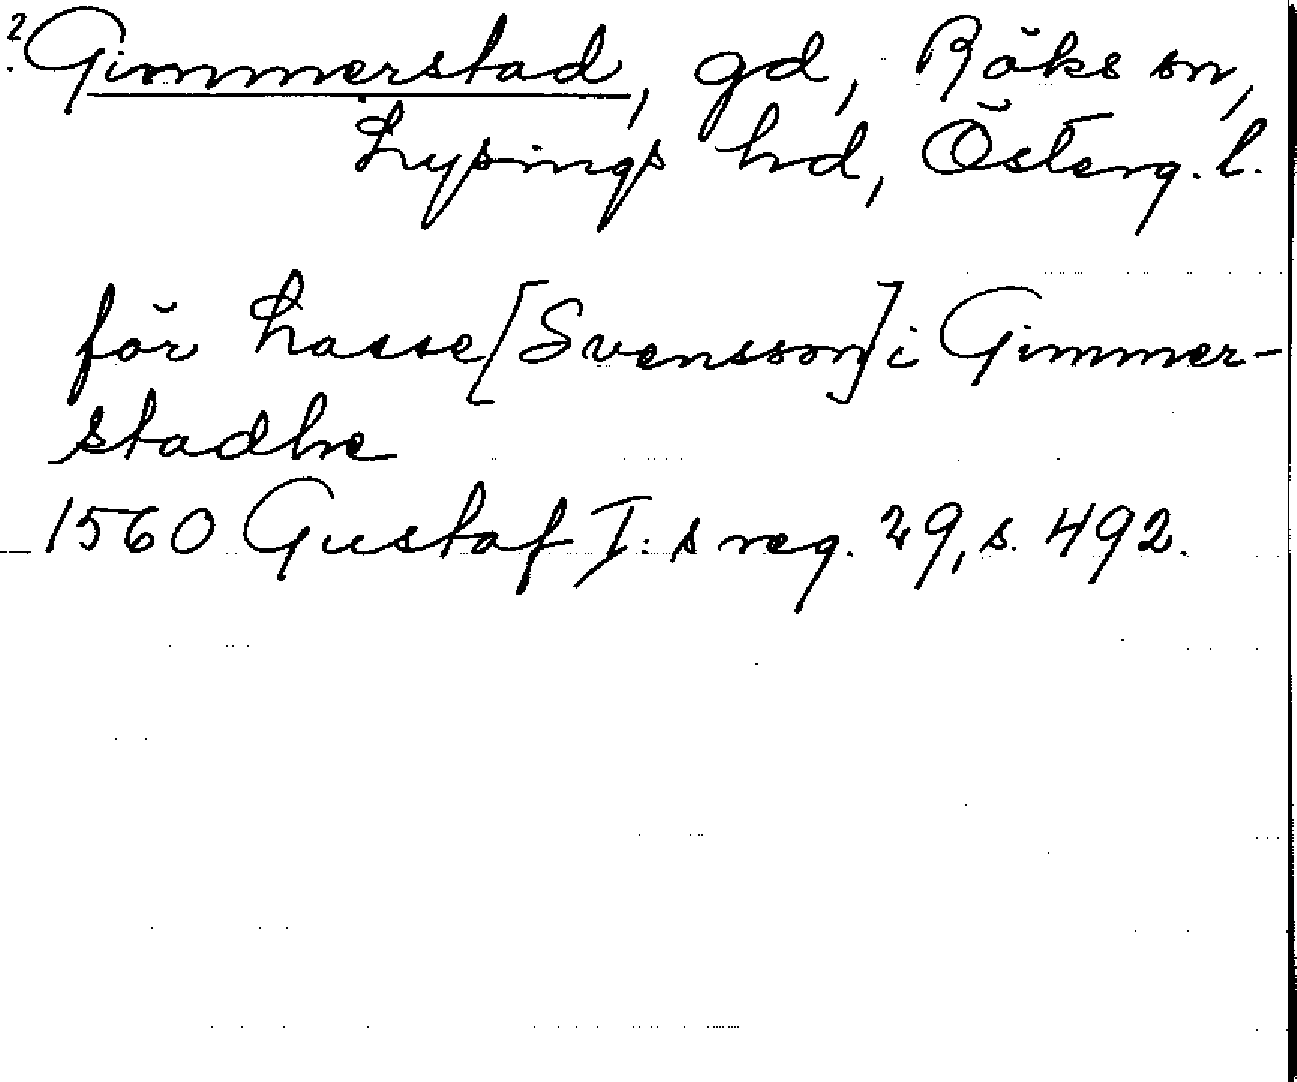 ? Gimmerstad, gd, Röks sn,
Lysings hd, Österg. l.
för Lasse [Svensson] i Gimmer-
stadhe
1560 Gustaf I:s reg. 29, s. 492.